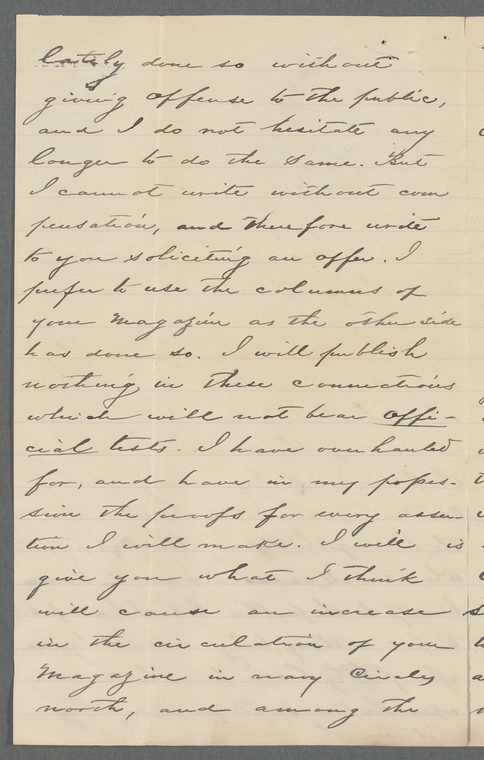 lately done so without
giving offense to the public,
and I do not hesitate any
longer to do the same. But
I cannot write without com
pensation, and therefore write
to you soliciting an offer. I
prefer to use the columns of
your Magazine as the other side
has done so. I will publish
nothing in these connections
which will not bear offi-
cial tests. I have overhauled
for, and have in my posses-
sion the proofs for every asser-
tion I will make. I will
give you what I think
will cause an increase
in the circulation of your
Magazine in navy Circles
north, and among the